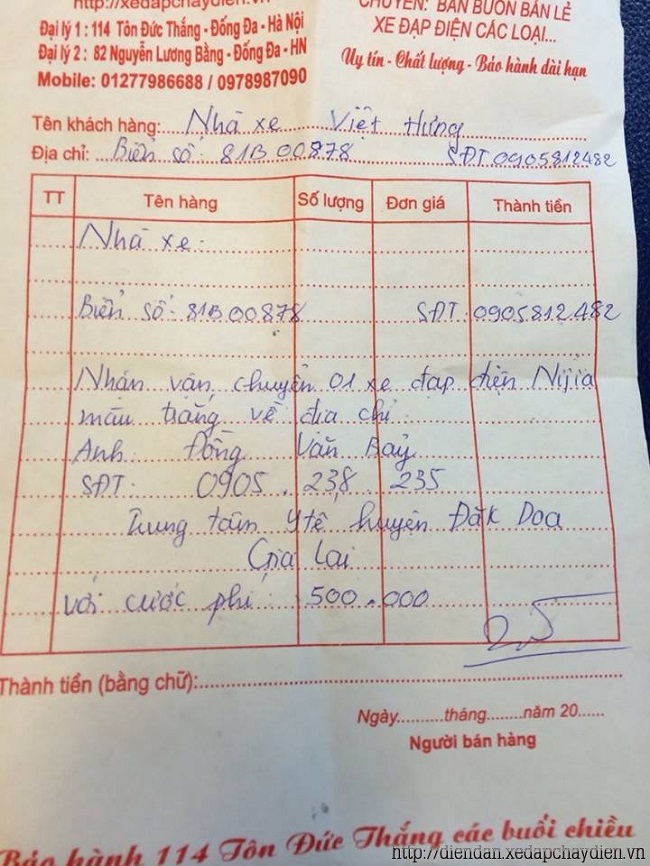 http://xedapchaydien.vn
Đại lý 1 : 114 Tôn Đức Thắng - Đống Đa - Hà Nội
Đại lý 2 : 82 Nguyễn Lương Bằng - Đống Đa - HN
Mobile: 01277986688 / 0978987090
CHUYÊN: BÁN BUÔN BÁN LẺ
XE ĐẠP ĐIỆN CÁC LOẠI...
Uy tín - Chất lượng - Bảo hành dài hạn
Tên khách hàng: Nhà xe Việt Hưng
Địa chỉ: Biển số: 81B 00878 SĐT 0905812482
TT Tên hàng Số lượng Đơn giá Thành tiền
Nhà xe:
Biển số: 81B 00878 SĐT: 0905.812.482
Nhận vận chuyển 01 xe đạp điện Nijia
màu trắng về địa chỉ:
Anh Đồng Văn Bảy
SĐT: 0905.238.235
Trung tâm y tế huyện Đăk Doa
Gia Lai
với cước phí: 500.000
Thành tiền (bằng chữ):
Ngày.........tháng........năm 20......
Người bán hàng
Bảo hành 114 Tôn Đức Thắng các buổi chiều
http://diendan.xedapchaydien.vn